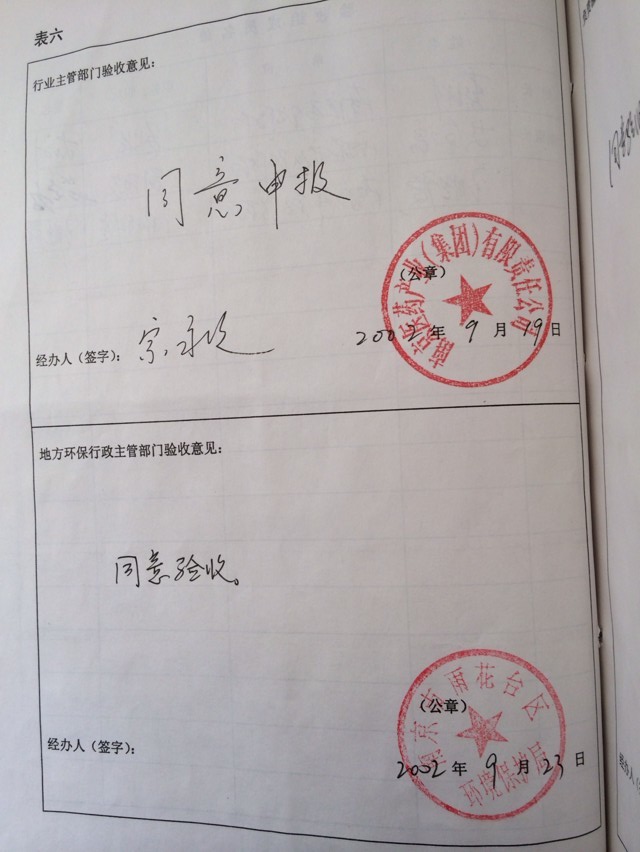 表六
行业主管部门验收意见：
同意申报
（公章）
南京医药产业（集团）有限责任公司
经办人（签字）：
2002年9月19日
地方环保行政主管部门验收意见：
同意验收。
（公章）
南京市雨花台区
环境保护局
经办人（签字）：
2002年9月23日